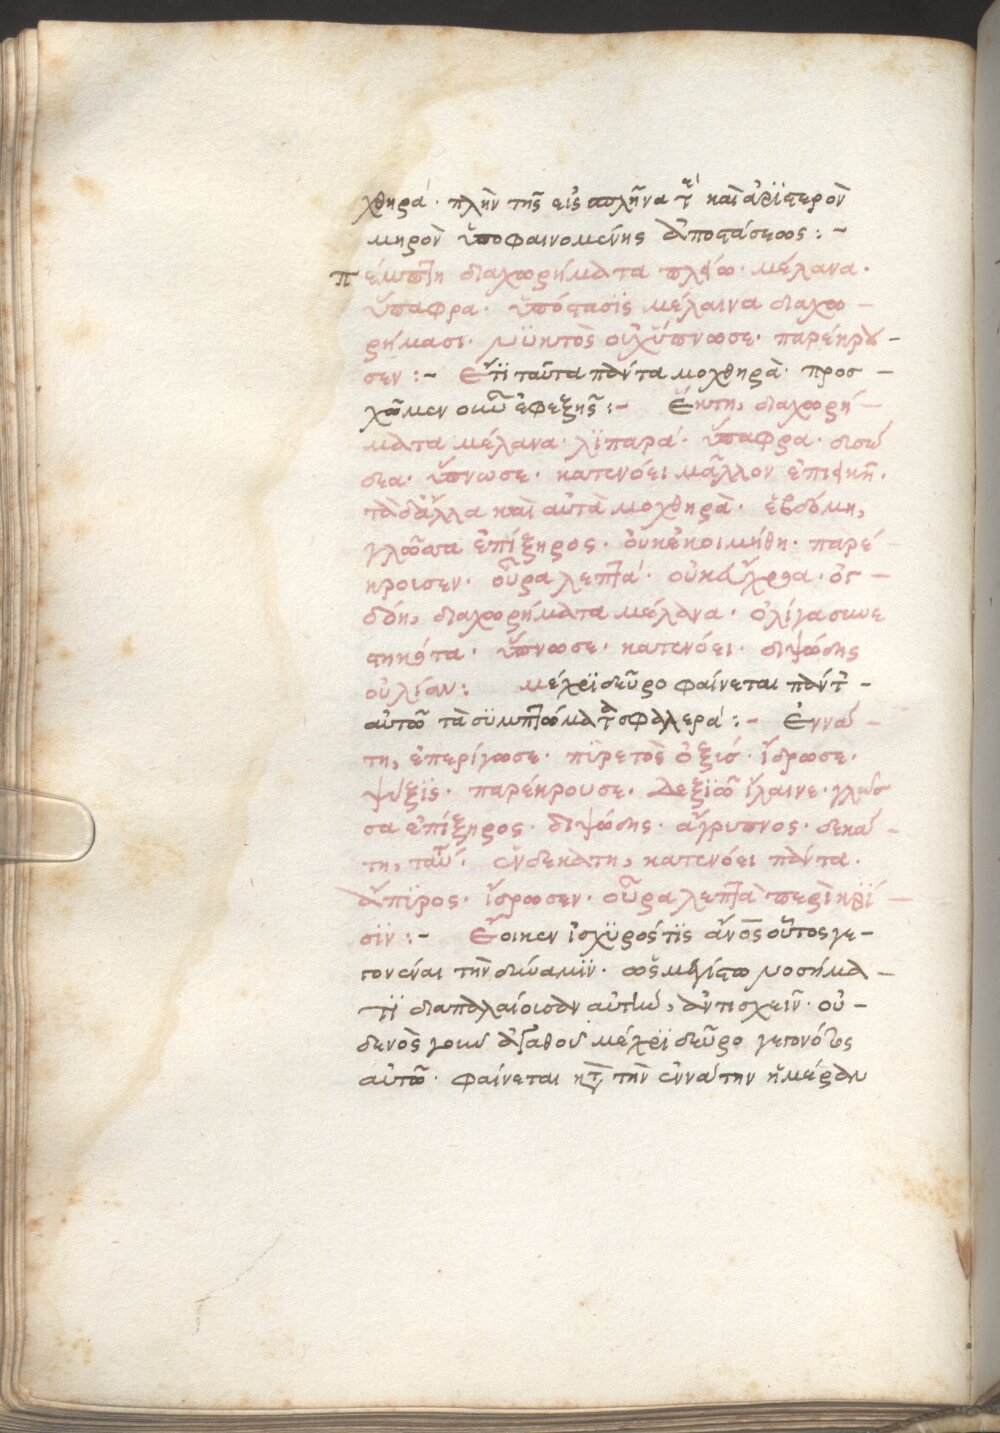 χθηρά· πλὴν τῆς εἰς σπλῆνα τε καὶ ἀριστερὸν
μηρὸν ὑποφαινομένης ἀποστάσεως :-
Πέμπτῃ διαχωρήματα πλείω· μέλανα·
ὕπαφρα· ὑπόστασϊς μέλαινα διαχω-
ρήμασι· νϋκτὸς οὐχ ὕπνωσε· παρέκρου-
σεν :- Ἔτϊ ταῦτα πάντα μοχθηρὰ· προσ-
χῶμεν οὖν ἐφεξῆς :- Ἕκτῃ, διαχωρή-
ματα μέλανα· λϊπαρά· ὕπαφρα· δυσώ
δεα· ὕπνωσε· κατενόει μᾶλλον ἐπιεικῆ·
τὰ δ' ἄλλα καὶ αὐτὰ μοχθηρὰ· ἑβδόμῃ,
γλῶσσα ἐπίξηρος· οὐκ ἐκοιμήθη· παρέ-
κροισεν· οὖρα λεπτά· οὐκ εὔχροα· ὀγ-
δόῃ, διαχωρήματα μέλανα· ὀλίγα συνε
στηκότα· ὕπνωσε· κατενόει· διψώδης
οὐ λίαν: μέχρϊ δεῦρο φαίνεται πάντα-
αὐτῶ τὰ σϋμπτώματα σφαλερά :- Ἐννά-
τῃ, ἐπερίγωσε· πϋρετὸς ὀξύς· ἵδρωσε·
ψῦξϊς· παρέκρουσε· Δεξϊῶ ἴλαινε· γλῶσ
σα ἐπίξηρος· διψώδης· ἄγρυπνος· δεκά-
τῃ, ταὐτά· ἑνδεκάτῃ, κατενόει πάντα·
ἄπϋρος· ἵδρωσεν· οὖρα λεπτὰ περὶ κρΐ-
σϊν :- Ἔοικεν ἰσχϋρός τϊς ἄνος οὗτος γε-
γονέναι τὴν δύναμϊν· ὡς μεγίστω νοσήμα-
τϊ διαπαλαίουσαν αὐτὴν, ἀντισχεῖν· οὐ-
δενὸς γοῦν ἀγαθοῦ μέχρϊ δεῦρο γεγονότος
αὐτῶ· φαίνεται κατὰ τὴν ἐννάτην ἡμέραν